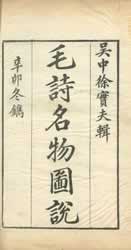 吳中徐實夫輯
毛詩名物圖說
辛卯冬鐫